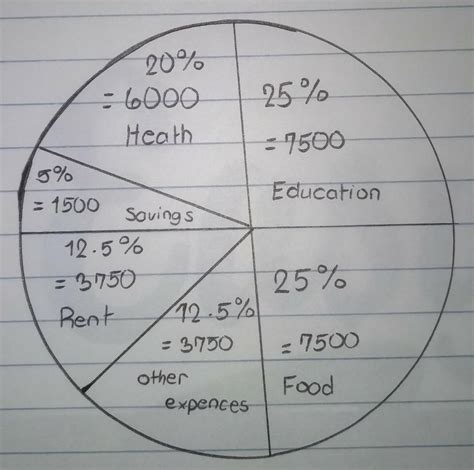 20%
= 6000
Heath
25%
= 7500
Education
5%
= 1500
Savings
12.5%
= 3750
Rent
12.5%
= 3750
other
expences
25%
= 7500
Food